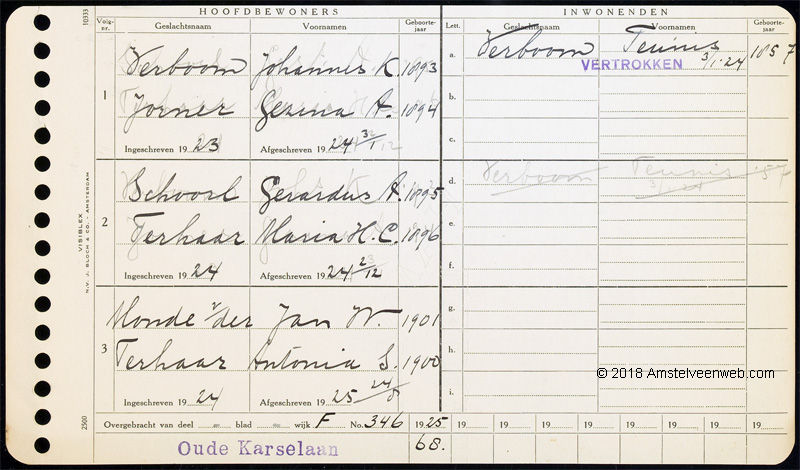 HOOFDBEWONERS
INWONENDEN
Volg-nr. Geslachtsnaam Voornamen Geboorte-jaar
Lett. Geslachtsnaam Voornamen Geboorte-jaar
10333
1
Verboom Johannes K. 1893
Jorner Gezina A. 1894
Ingeschreven 1923 Afgeschreven 1924 31/1
2
Schoorl Gerardus A. 1895
Terhaar Maria H. C. 1896
Ingeschreven 1924 Afgeschreven 1924 2/12
3
Monde v/der Jan W. 1901
Terhaar Antonia S. 1900
Ingeschreven 1924 Afgeschreven 1925 24/8
a. Verboom Teunis 1857
VERTROKKEN 3/1-24
b.
c.
d. Verboom Teunis '57
3/1 24
e.
f.
g.
h.
i.
© 2018 Amstelveenweb.com
Overgebracht van deel blad wijk F No. 346 1925 19 19 19 19 19 19 19 19
Oude Karselaan 68.
VISIBLEX
N.V. J. BLOCH & CO. - AMSTERDAM
2500